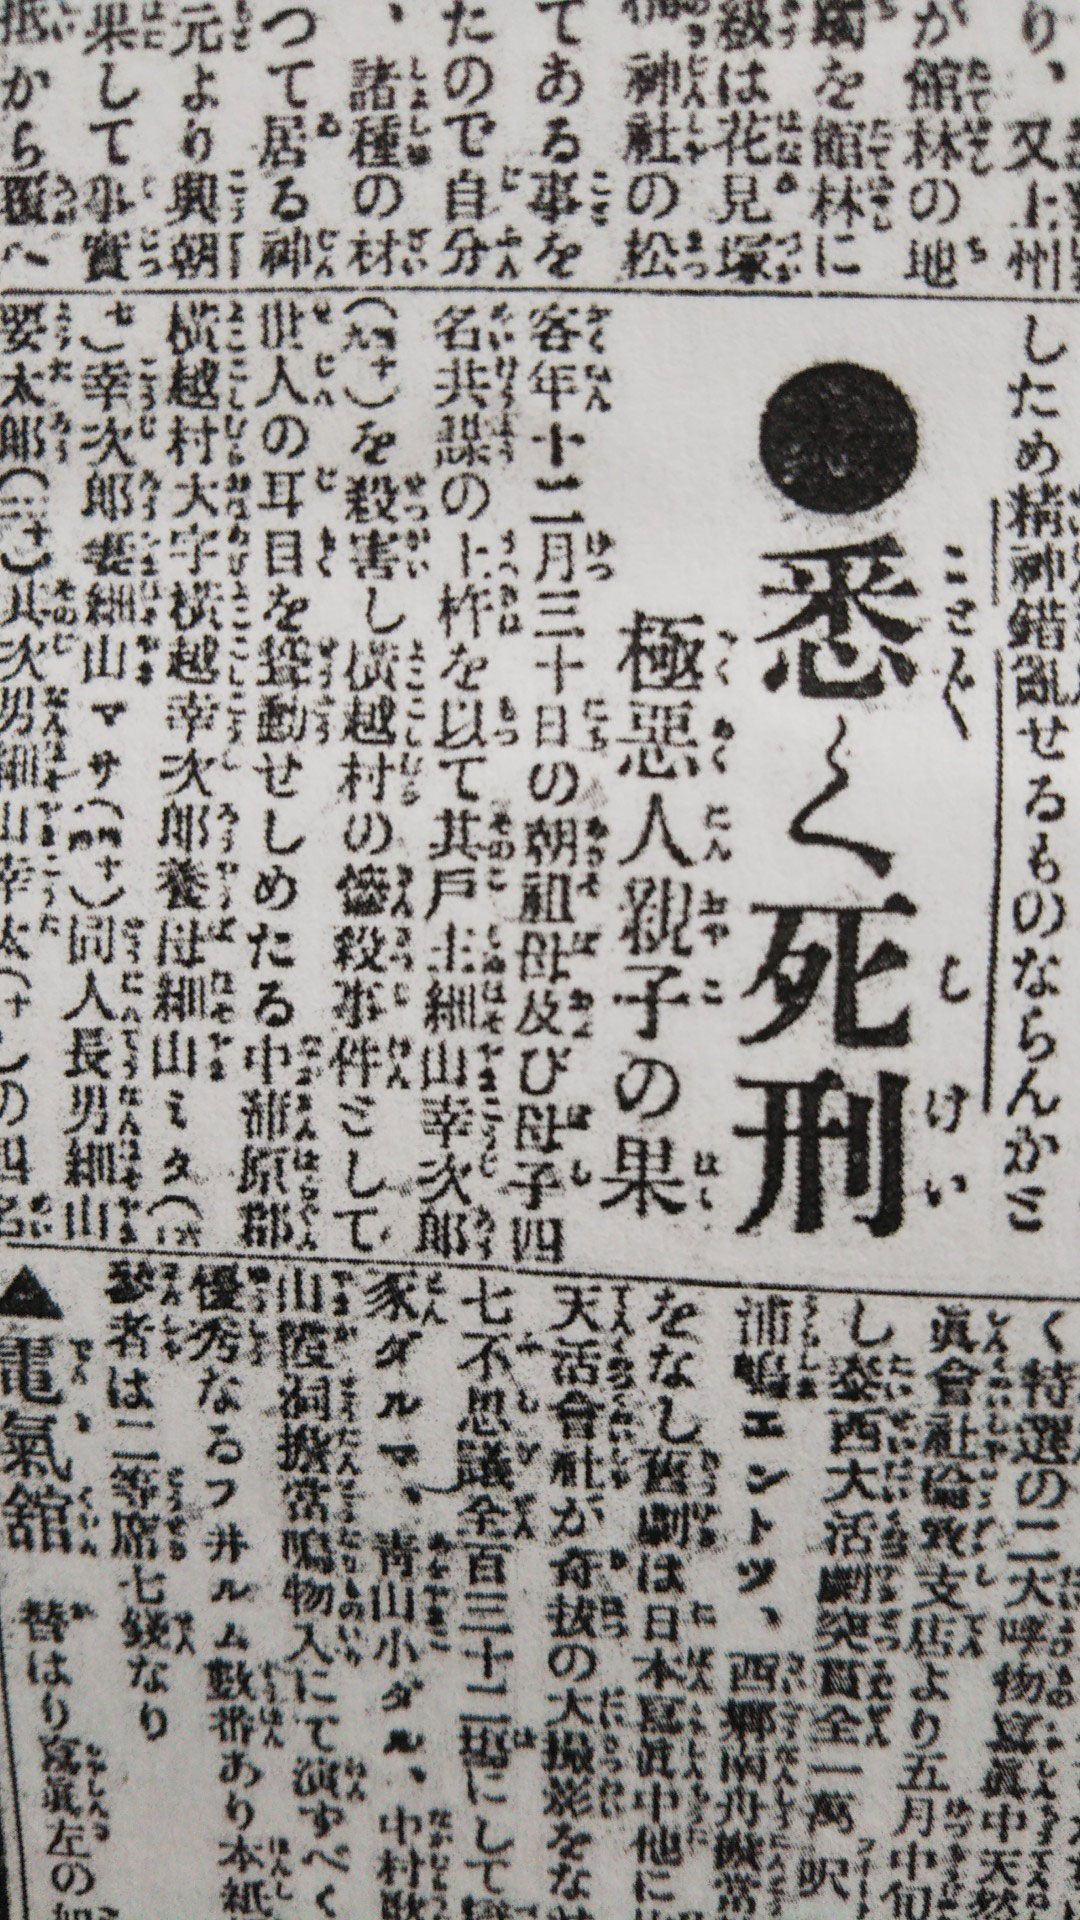 り、又上州
が館林の地
燭を館林に
級は花見塚
神社の松
てある事を
たので自分
、諸種の材
つて居る神
元より興朝
果して事實
から
したため精神錯亂せるものならんかミ
●悉く死刑
こと〴〵くしけい
極惡人親子の果
客年十二月三十日の朝祖母及び母子四
名共謀の上杵を以て其戸主細山幸次郎
(四十)を殺害し横越村の慘殺事件ミして
世人の耳目を聳動せしめたる中蒲原郡
横越村大字横越幸次郎養母細山ミタ(六
七)幸次郎妻細山マサ(四十)同人長男細山
要太郎(二十)其次男細山幸太(十 の四名
く特選の二大呼物寫眞中天然
眞會社倫敦支店より五月中旬
し泰西大活劇突貫全一萬呎
浦嶋エントツ、西郷南舟
をなし舊劇は日本寫眞中他に
天活會社が奇抜の大撮影をなせ
七不思議全百三十二塲にして
家ダルマ、青山小ダル、中村歌
山霞洞擔當鳴物入にて演ずべく
優秀なるフ井ルム數番あり本紙
者は二等席七錢なり
▲電氣舘 替はり寫眞左の如